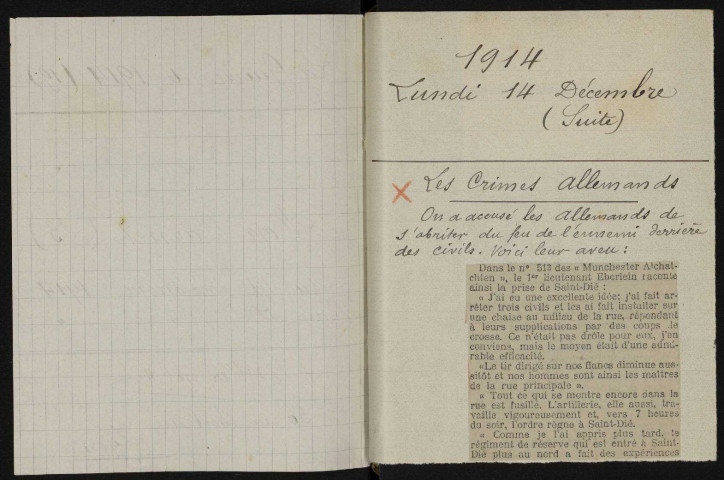 1914
Lundi 14 Décembre
(Suite)
Les Crimes allemands
On a accusé les allemands de
s'abriter du feu de l'ennemi derrière
des civils. Voici leur aveu :
Dans le nº 513 des « Munchester
chten », le 1er lieutenant Eberlein raconte
ainsi la prise de Saint-Dié :
« J'ai eu une excellente idée: j'ai fait ar-
rêter trois civils et les ai fait installer sur
une chaise au milieu de la rue, répondant
à leurs supplications par des coups de
crosse. Ce n'était pas drôle pour eux, j'en
conviens, mais le moyen était d'une admi-
rable efficacité.
«Le tir dirigé sur nos flancs diminue aus-
sitôt et nos hommes sont ainsi les maîtres
de la rue principale ».
« Tout ce qui se montre encore dans la
rue est fusillé. L'artillerie, elle aussi, tra-
vaille vigoureusement et, vers 7 heures
du soir, l'ordre règne à Saint-Dié.
« Comme je l'ai appris plus tard, le
régiment de réserve qui est entré à Saint-
Dié plus au nord a fait des expériences